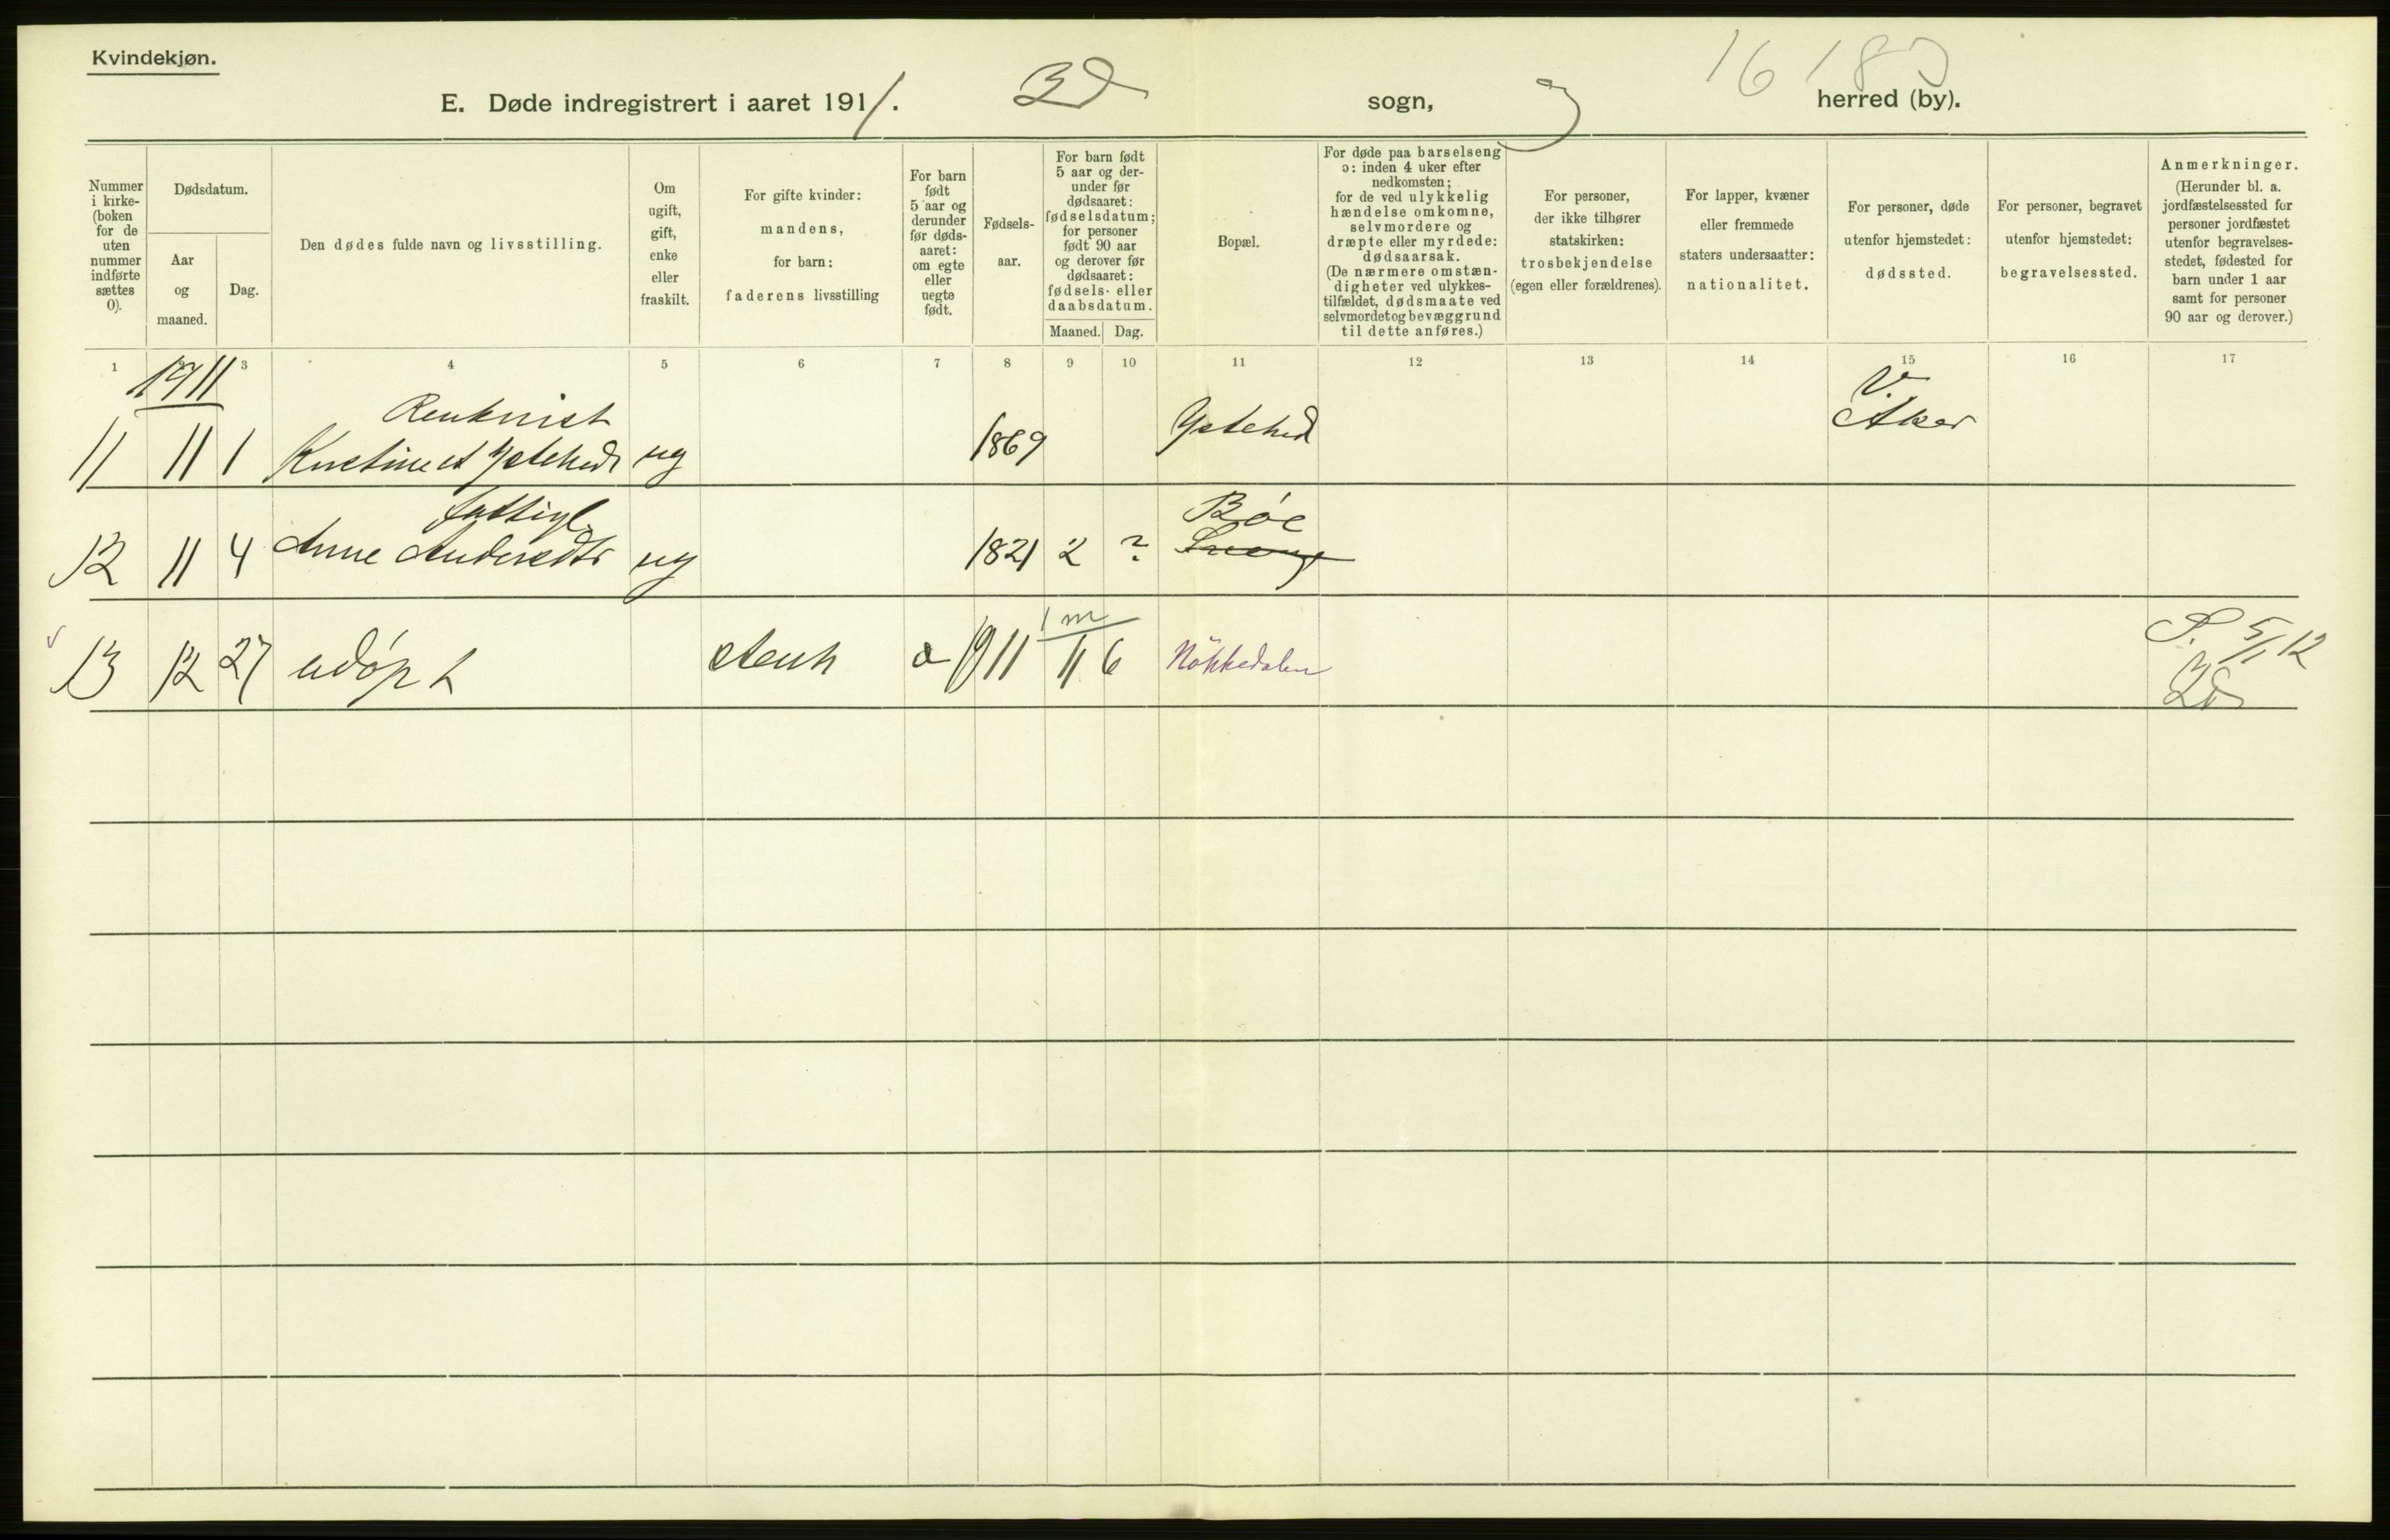 Kvindekjøn.
E. Døde indregistrert i aaret 1911. sogn, herred (by).
16
Nummer i kirke- (boken for de uten nummer indførte sættes 0).
Dødsdatum.
Aar og maaned.
Dag.
Den dødes fulde navn og livsstilling.
Om ugift, gift, enke eller fraskilt.
For gifte kvinder: mandens, for barn: faderens livsstilling
For barn født 5 aar og derunder før døds- aaret: om egte eller uegte født.
Fødsels- aar.
For barn født 5 aar og der- under før dødsaaret: fødselsdatum; for personer født 90 aar og derover før dødsaaret: fødsels- eller daabsdatum.
Maaned. Dag.
Bopæl.
For døde paa barselseng ɔ: inden 4 uker efter nedkomsten; for de ved ulykkelig hændelse omkomne, selvmordere og dræpte eller myrdede: dødsaarsak. (De nærmere omstæn- digheter ved ulykkes- tilfældet, dødsmaate ved selvmordet og bevæggrund til dette anføres.)
For personer, der ikke tilhører statskirken: trosbekjendelse (egen eller forældrenes).
For lapper, kvæner eller fremmede staters undersaatter: nationalitet.
For personer, døde utenfor hjemstedet: dødssted.
For personer, begravet utenfor hjemstedet: begravelsessted.
Anmerkninger. (Herunder bl. a. jordfæstelsessted for personer jordfæstet utenfor begravelses- stedet, fødested for barn under 1 aar samt for personer 90 aar og derover.)
1 3 4 5 6 7 8 9 10 11 12 13 14 15 16 17
1911
V.
11 11 1 Ystehed ug 1869 Ystehed Aker
Bøe
12 11 4 Anne Andersdtr ug 1821 2 ?
1 m
13 12 27 udøpt 1911 11 6 Nökkedalen 5/1 12